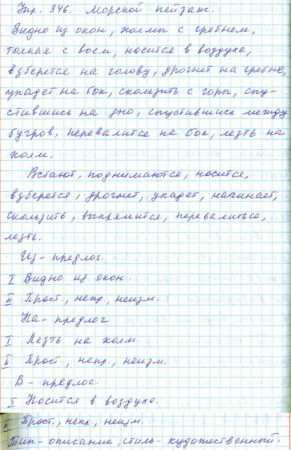 Упр. 346. Морской пейзаж.
Видно из окон, холмы с гребнем,
таская с воем, носится в воздухе,
взберется на голову, дрогнет на гребне,
упадет на бок, скользить с горы, спу-
стившись на дно, спустившись между
бугров, перевалится на бок, лезть на
холм.
Встают, поднимаются, носится,
взберется, дрогнет, упадет, начинает,
скользить, выпрямится, перевалиться,
лезть.
Из - предлог.
I Видно из окон.
II Прост., непр., неизм.
На - предлог
I Лезть на холм
II Прост., непр., неизм.
В - предлог.
I Носится в воздухе.
II Прост., непр., неизм.
Тип - описание, стиль - художественный.